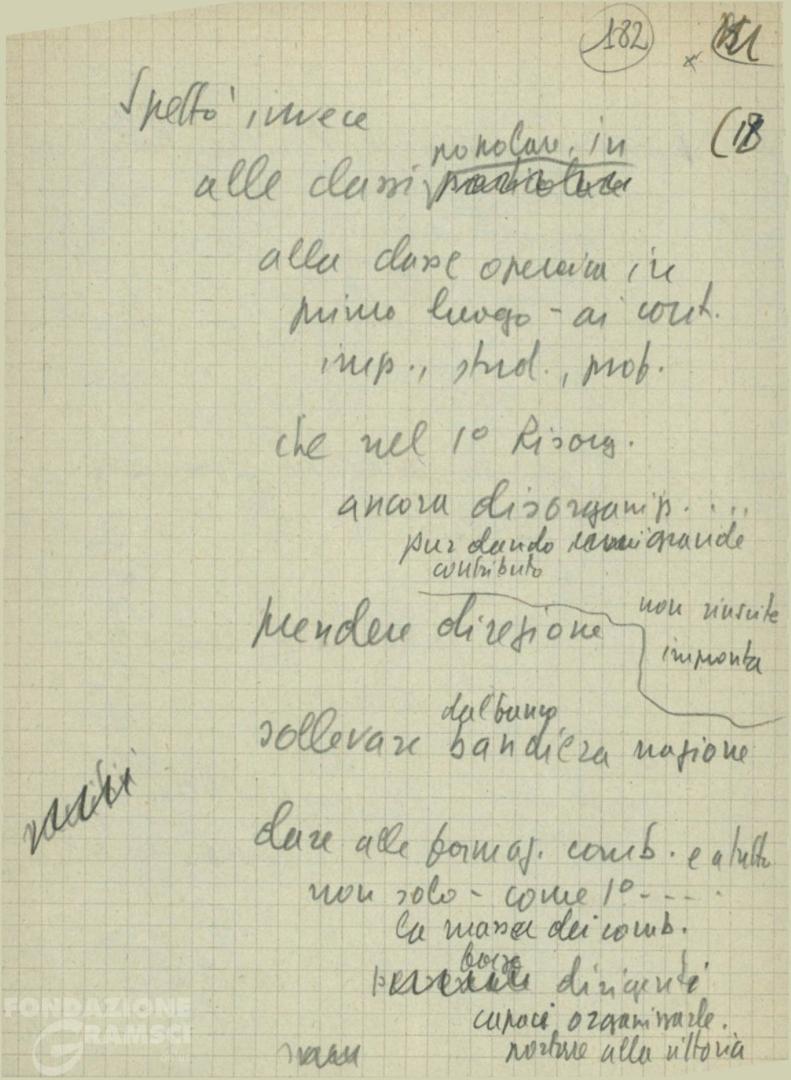 182
(18
Spettò invece
popolari, in
alle classi
alla classe operaia in
primo luogo - ai cont.
imp., stud., prof.
che nel 1° Risorg.
ancora disorganiz. ....
pur dando grande
contributo
non riuscite
prendere direzione
impronta
dal fango
sollevare bandiera nazione
dare alle formaz. comb. e a tutto
non solo - come 1° ----
la massa dei comb.
forze
dirigenti
capaci organizzarle.
portare alla vittoria
FONDAZIONE
GRAMSCI